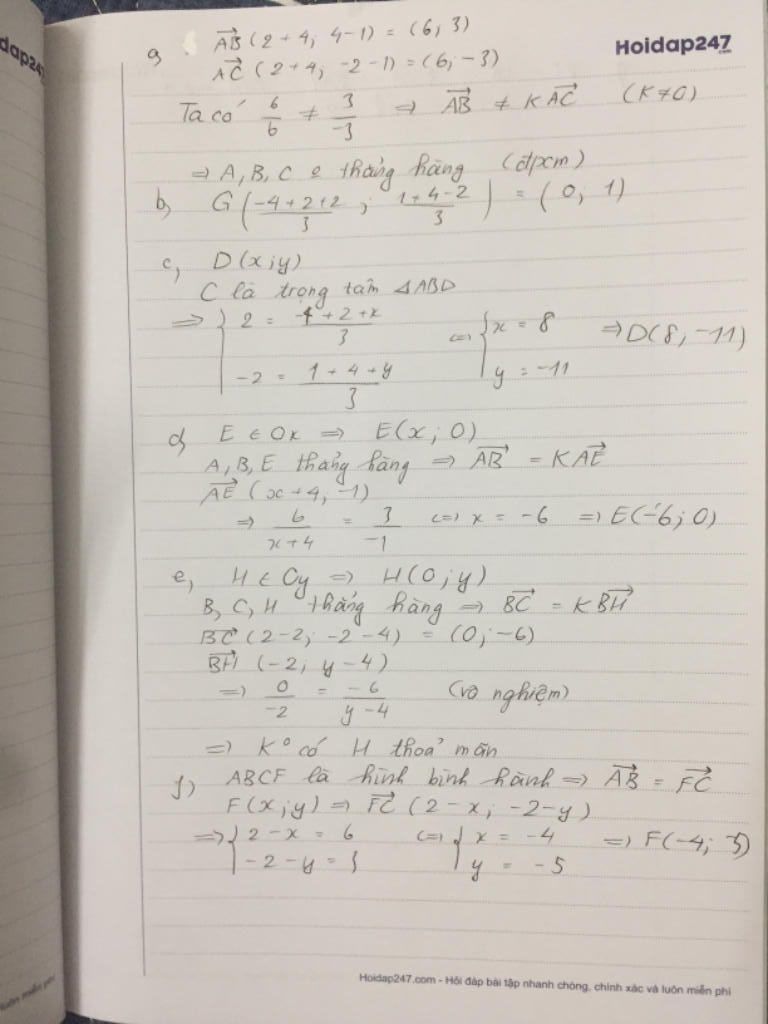 dap247
Hoidap247
.com
a) AB→ (2+4; 4-1) = (6; 3)
AC→ (2+4; -2-1) = (6; -3)
Ta có 6/6 ≠ 3/-3 => AB→ ≠ KAC→ (K≠0)
=> A, B, C o thẳng hàng (đpcm)
b, G((-4+2+2)/3 ; (1+4-2)/3) = (0; 1)
c, D(x;y)
C là trọng tâm ΔABD
=> { 2 = (-4+2+x)/3 <=> { x = 8 => D(8; -11)
-2 = (1+4+y)/3 y = -11
d) E ∈ Ox => E(x; 0)
A, B, E thẳng hàng => AB→ = KAE→
AE→ (x+4; -1)
=> 6/(x+4) = 3/-1 <=> x = -6 => E(-6; 0)
e, H ∈ Oy => H(0; y)
B, C, H thẳng hàng => BC→ = KBH→
BC→ (2-2; -2-4) = (0; -6)
BH→ (-2; y-4)
=> 0/-2 = -6/(y-4) (vô nghiệm)
=> K° có H thoả mãn
f) ABCF là hình bình hành => AB→ = FC→
F(x;y) => FC→ (2-x; -2-y)
=> { 2-x = 6 <=> { x = -4 => F(-4; -5)
-2-y = 3 y = -5
Hoidap247.com - Hỏi đáp bài tập nhanh chóng, chính xác và luôn miễn phí
luôn miễn phí